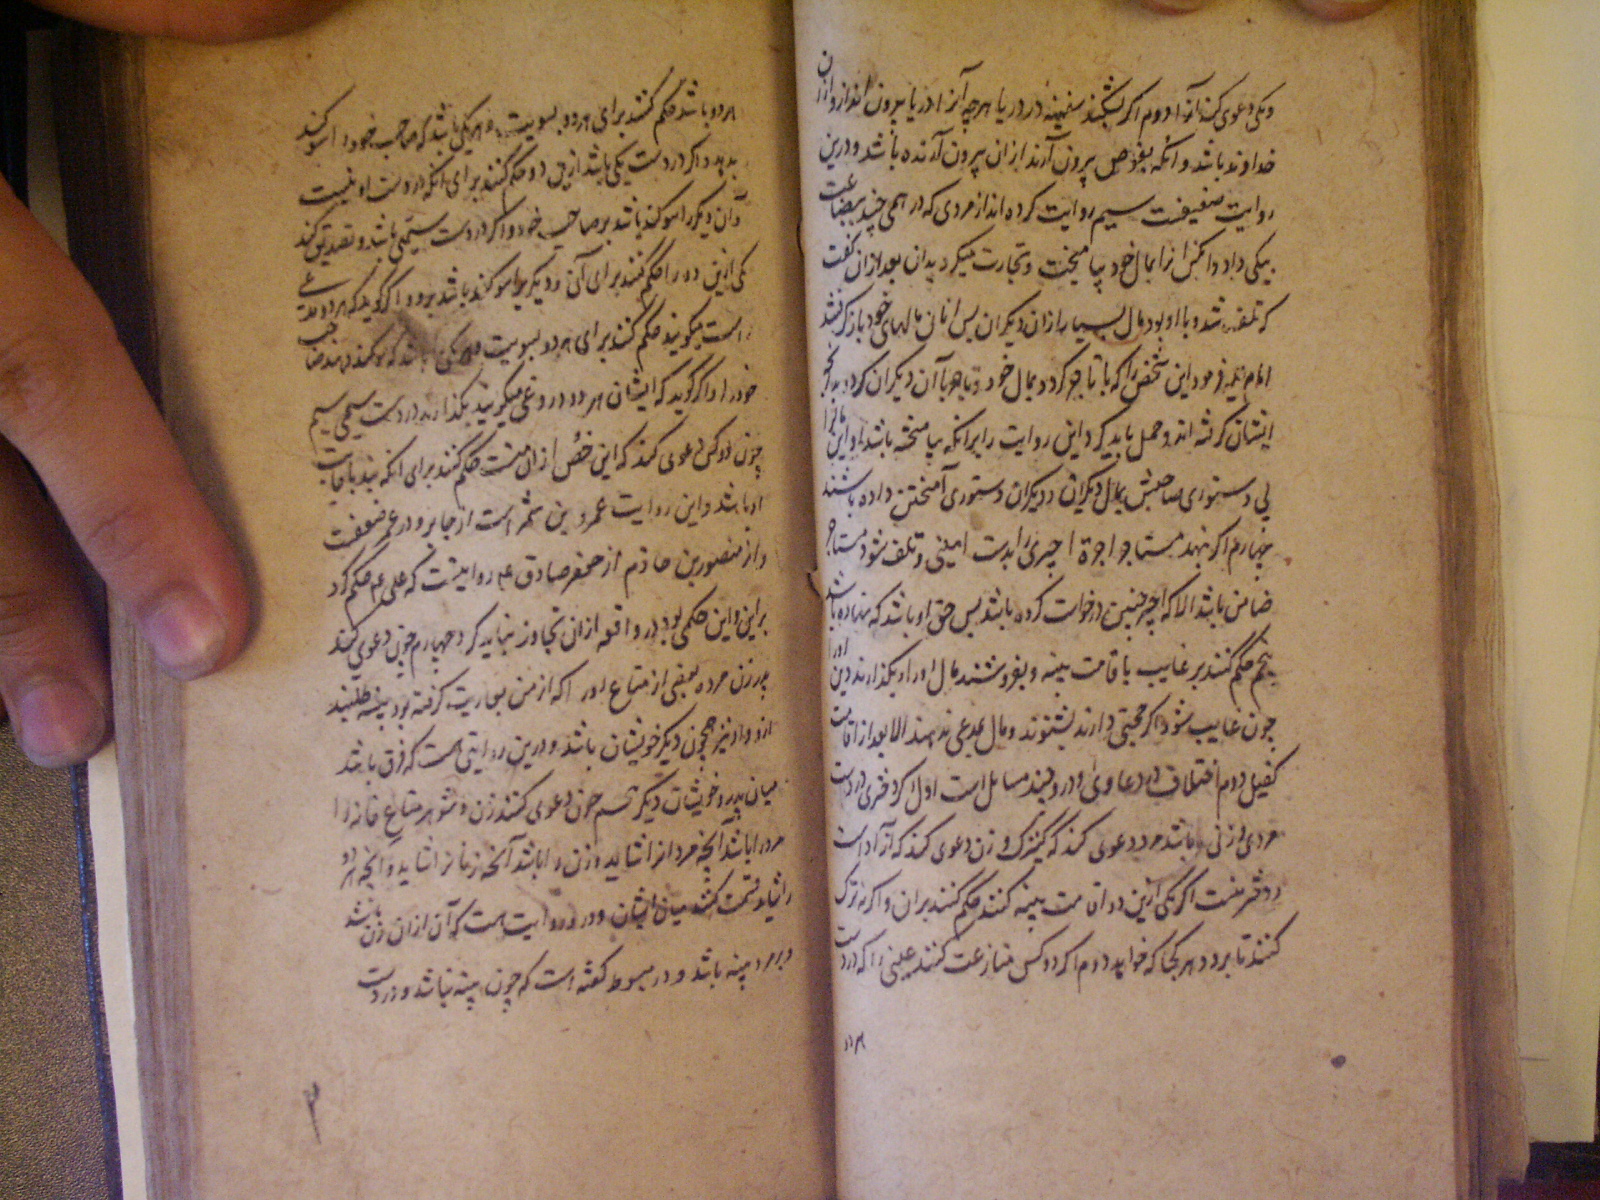 و یکی دعوی کند آنرا دوم اگر بشکند سفینه در دریا هر چه آنرا دریا بیرون اندازد از ان
خداوند باشد و آنکه بغوص بیرون آرند از ان بیرون آرنده باشد و درین
روایت ضعیفست سیم روایت کرده اند از مردی که در همی چند بضاعت
بیکی داد و آنکس انرا بمال خود بیامیخت و تجارت میکرد بدان بعد از ان گفت
که تلف شد و با او بود مال بسیار از ان دیگران پس انان مالهای خود باز گرفتند
امام علیه فرمود این شخص را که با تاجر کرد و بمال خود دیگران کرد بدانچه
ایشان گرفته اند و حمل باید کرد این روایت را برانکه بیامیخته باشد او این مال را
بی دستوری صاحبش بمال دیگران و دیگران دستوری آمیختن داده باشند
چهارم اگر بنهد مستاجر اجرة اجیری را بدست امینی و تلف شود مستاجر
ضامن باشد الا که اجیر چنین درخواست کرده باشد پس حق او باشد که نهاده باشد
پنجم حکم کنند بر غایب با قامت بینه و بفروشند مال او را و بگذارند دین اورا
چون غایب شود اگر حجتی دارند بشنوند و مال بمدعی ندهند الا بعد از اقامت
کفیل دوم اختلاف در دعاوی و درو چند مسایل است اول اگر دختری در دست
مردی و زنی باشد مرد دعوی کند که کنیزک و زن دعوی کند که آزاد است
و دختر منست اگر یکی ازین دو اقامت بینه کنند حکم کنند بران و اگر نه ترک
کنند تا برود هر کجا که خواهد دوم اگر دو کس منازعت کنند عینی را که در دست
هر دو
هر دو باشد حکم کنند برای هر دو بسویت و هر یکی باشد که صاحب خود را سوکند
بدهد و اگر در دست یکی باشد ازین دو حکم کنند برای آنکه در دست او نیست
و آن دیگر را سوکند باشد بر صاحب خود و اگر در دست سیمی باشد و تصدیق کند
یکی ازین دو را حکم کنند برای آن و دیگر را سوکند باشد برو و اگر گوید که هر دو مدعی
راست میگویند حکم کنند برای هر دو بسویت و هر یکی باشد که سوکند دهد صاحب
خود را و اگر گوید که ایشان هر دو دروغ میگویند بگذارند در دست سیمی سیم
چون دو کس دعوی کند که این خص از ان منست حکم کنند برای انکه بند با قامت
او باشد و این روایت عمرو بن شمر است از جابر و در عمرو ضعفست
و از منصور بن حازم از جعفر صادق عم روایتست که علی عم حکم کرد
براین و این حکمی بود در واقعه ازان تجاوز نباید کرد چهارم چون دعوی کند
پدر زن مرده بعضی از متاع او را که از من بعاریت گرفته بود بینه طلبند
ازو و او نیز همچون دیگر خویشان باشد و درین روایتی هست که فرق باشد
میان پدر و خویشان دیگر پنجم چون دعوی کنند زن و شوهر متاع خانه را
مرد را باشد آنچه مردانرا شاید و زن را باشد آنچه زنانرا شاید و آنچه هر دو
را شاید قسمت کنند میان ایشان و در روایت هست که آن از ان زن باشد
و بر مرد بینه باشد و در مبسوط گفته است که چون بینه نباشد و در دست
۳